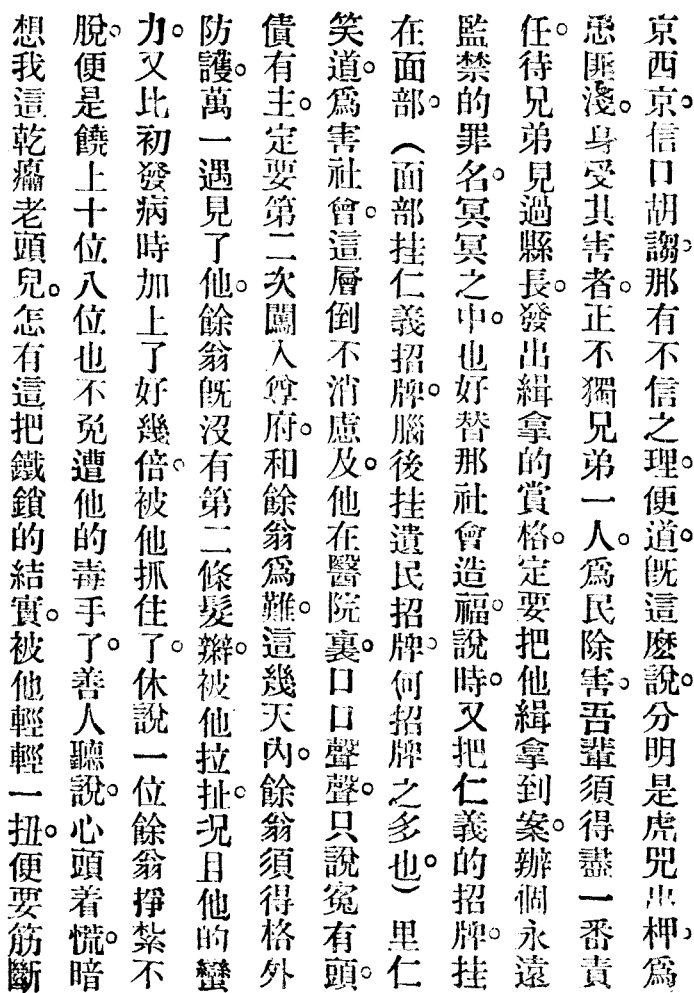 京西京。信口胡謅。那有不信之理。便道。旣這麽說。分明是虎兕出柙。爲
患匪淺。身受其害者。正不獨兄弟一人。爲民除害。吾輩須得盡一番責
任。待兄弟見過縣長。發出緝拿的賞格。定要把他緝拿到案。辦個永遠
監禁的罪名。冥冥之中。也好替那社會造福。說時。又把仁義的招牌。挂
在面部。（面部挂仁義招牌。腦後挂遺民招牌。何招牌之多也。）里仁
笑道。爲害社會。這層倒不消慮及。他在醫院裏。口口聲聲。只說寃有頭。
債有主。定要第二次闖入尊府。和餘翁爲難。這幾天內。餘翁須得格外
防護。萬一遇見了他。餘翁旣沒有第二條髮辮。被他拉扯。况且他的蠻
力。又比初發病時加上了好幾倍。被他抓住了。休說一位餘翁掙紮不
脫。便是饒上十位八位也不免遭他的毒手了。善人聽說。心頭着慌。暗
想我這乾癟老頭兒。怎有這把鐵鎖的結實。被他輕輕一扭。便要筋斷